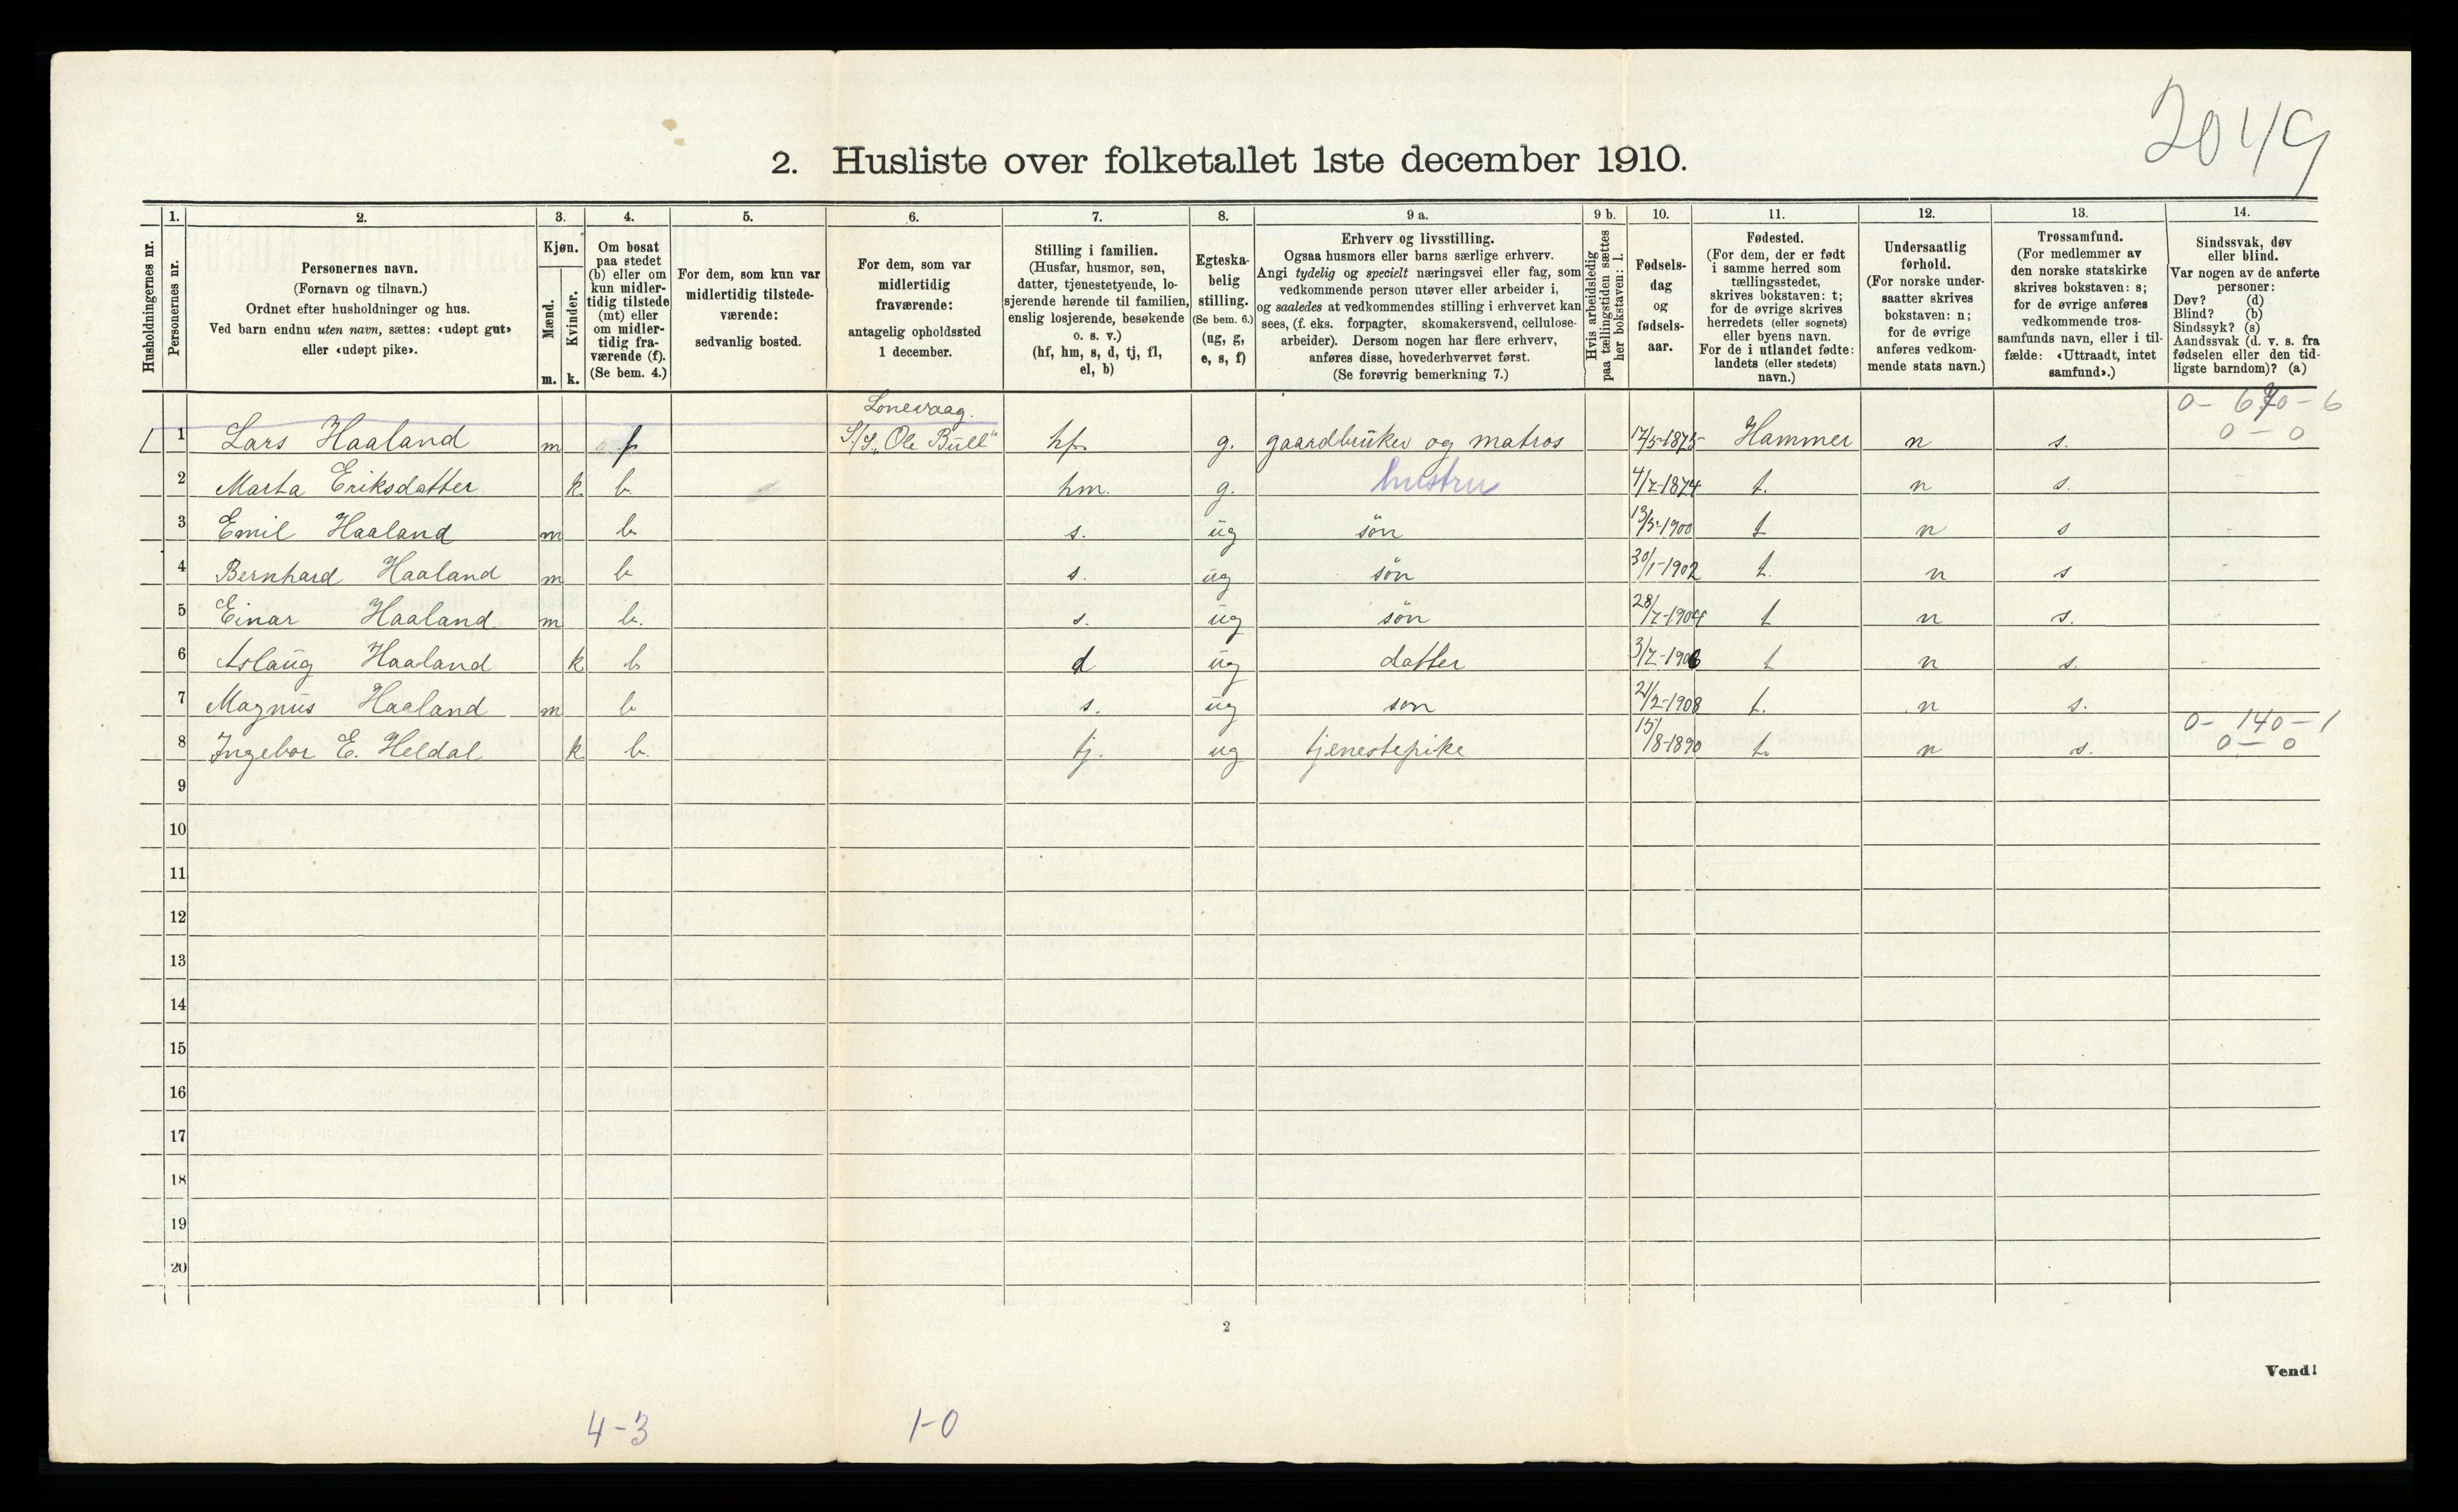 2049
2. Husliste over folketallet 1ste december 1910.
1. 2. 3. 4. 5. 6. 7. 8. 9 a. 9 b. 10. 11. 12. 13. 14.
Husholdningernes nr.
Personernes nr.
Personernes navn.
(Fornavn og tilnavn.)
Ordnet efter husholdninger og hus.
Ved barn endnu uten navn, sættes: «udøpt gut»
eller «udøpt pike».
Kjøn.
Mænd.
Kvinder.
m. k.
Om bosat
paa stedet
(b) eller om
kun midler-
tidig tilstede
(mt) eller
om midler-
tidig fra-
værende (f).
(Se bem. 4.)
For dem, som kun var
midlertidig tilstede-
værende:
sedvanlig bosted.
For dem, som var
midlertidig
fraværende:
antagelig opholdssted
1 december.
Stilling i familien.
(Husfar, husmor, søn,
datter, tjenestetyende, lo-
sjerende hørende til familien,
enslig losjerende, besøkende
o. s. v.)
(hf, hm, s, d, tj, fl,
el, b)
Egteska-
belig
stilling.
(Se bem. 6.)
(ug, g,
e, s, f)
Erhverv og livsstilling.
Ogsaa husmors eller barns særlige erhverv.
Angi tydelig og specielt næringsvei eller fag, som
vedkommende person utøver eller arbeider i,
og saaledes at vedkommendes stilling i erhvervet kan
sees, (f. eks. forpagter, skomakersvend, cellulose-
arbeider). Dersom nogen har flere erhverv,
anføres disse, hovederhvervet først.
(Se forøvrig bemerkning 7.)
Hvis arbeidsledig
paa tællingstiden sættes
her bokstaven: l.
Fødsels-
dag
og
fødsels-
aar.
Fødested.
(For dem, der er født
i samme herred som
tællingsstedet,
skrives bokstaven: t;
for de øvrige skrives
herredets (eller sognets)
eller byens navn.
For de i utlandet fødte:
landets (eller stedets)
navn.)
Undersaatlig
forhold.
(For norske under-
saatter skrives
bokstaven: n;
for de øvrige
anføres vedkom-
mende stats navn.)
Trossamfund.
(For medlemmer av
den norske statskirke
skrives bokstaven: s;
for de øvrige anføres
vedkommende tros-
samfunds navn, eller i til-
fælde: «Uttraadt, intet
samfund».)
Sindssvak, døv
eller blind.
Var nogen av de anførte
personer:
Døv? (d)
Blind? (b)
Sindssyk? (s)
Aandssvak (d. v. s. fra
fødselen eller den tid-
ligste barndom)? (a)
Lonevaag.
1 Lars Haaland m f S/S „Ole Bull" hf. g. gaardbruker og matros 17/5-1875 Hammer n s. 0 - 0
2 Marta Eriksdatter k. b. hm. g. hustru 4/7-1874 t. n s.
3 Emil Haaland m b. s. ug søn 13/5-1900 t n s
4 Bernhard Haaland m b s. ug søn 30/1-1902 t. n s
5 Einar Haaland m b. s. ug søn 28/7-1904 t n s.
6 Aslaug Haaland k b d ug datter 3/7-1906 t n s.
7 Magnus Haaland m b s. ug søn 21/2-1908 t. n s.
0- 140-1
8 Ingebor E. Heldal k b. tj. ug tjenestepike 15/8-1890 t. n s. 0 - 0
9
10
11
12
13
14
15
16
17
18
19
20
2
Vend!
4-3 1-0